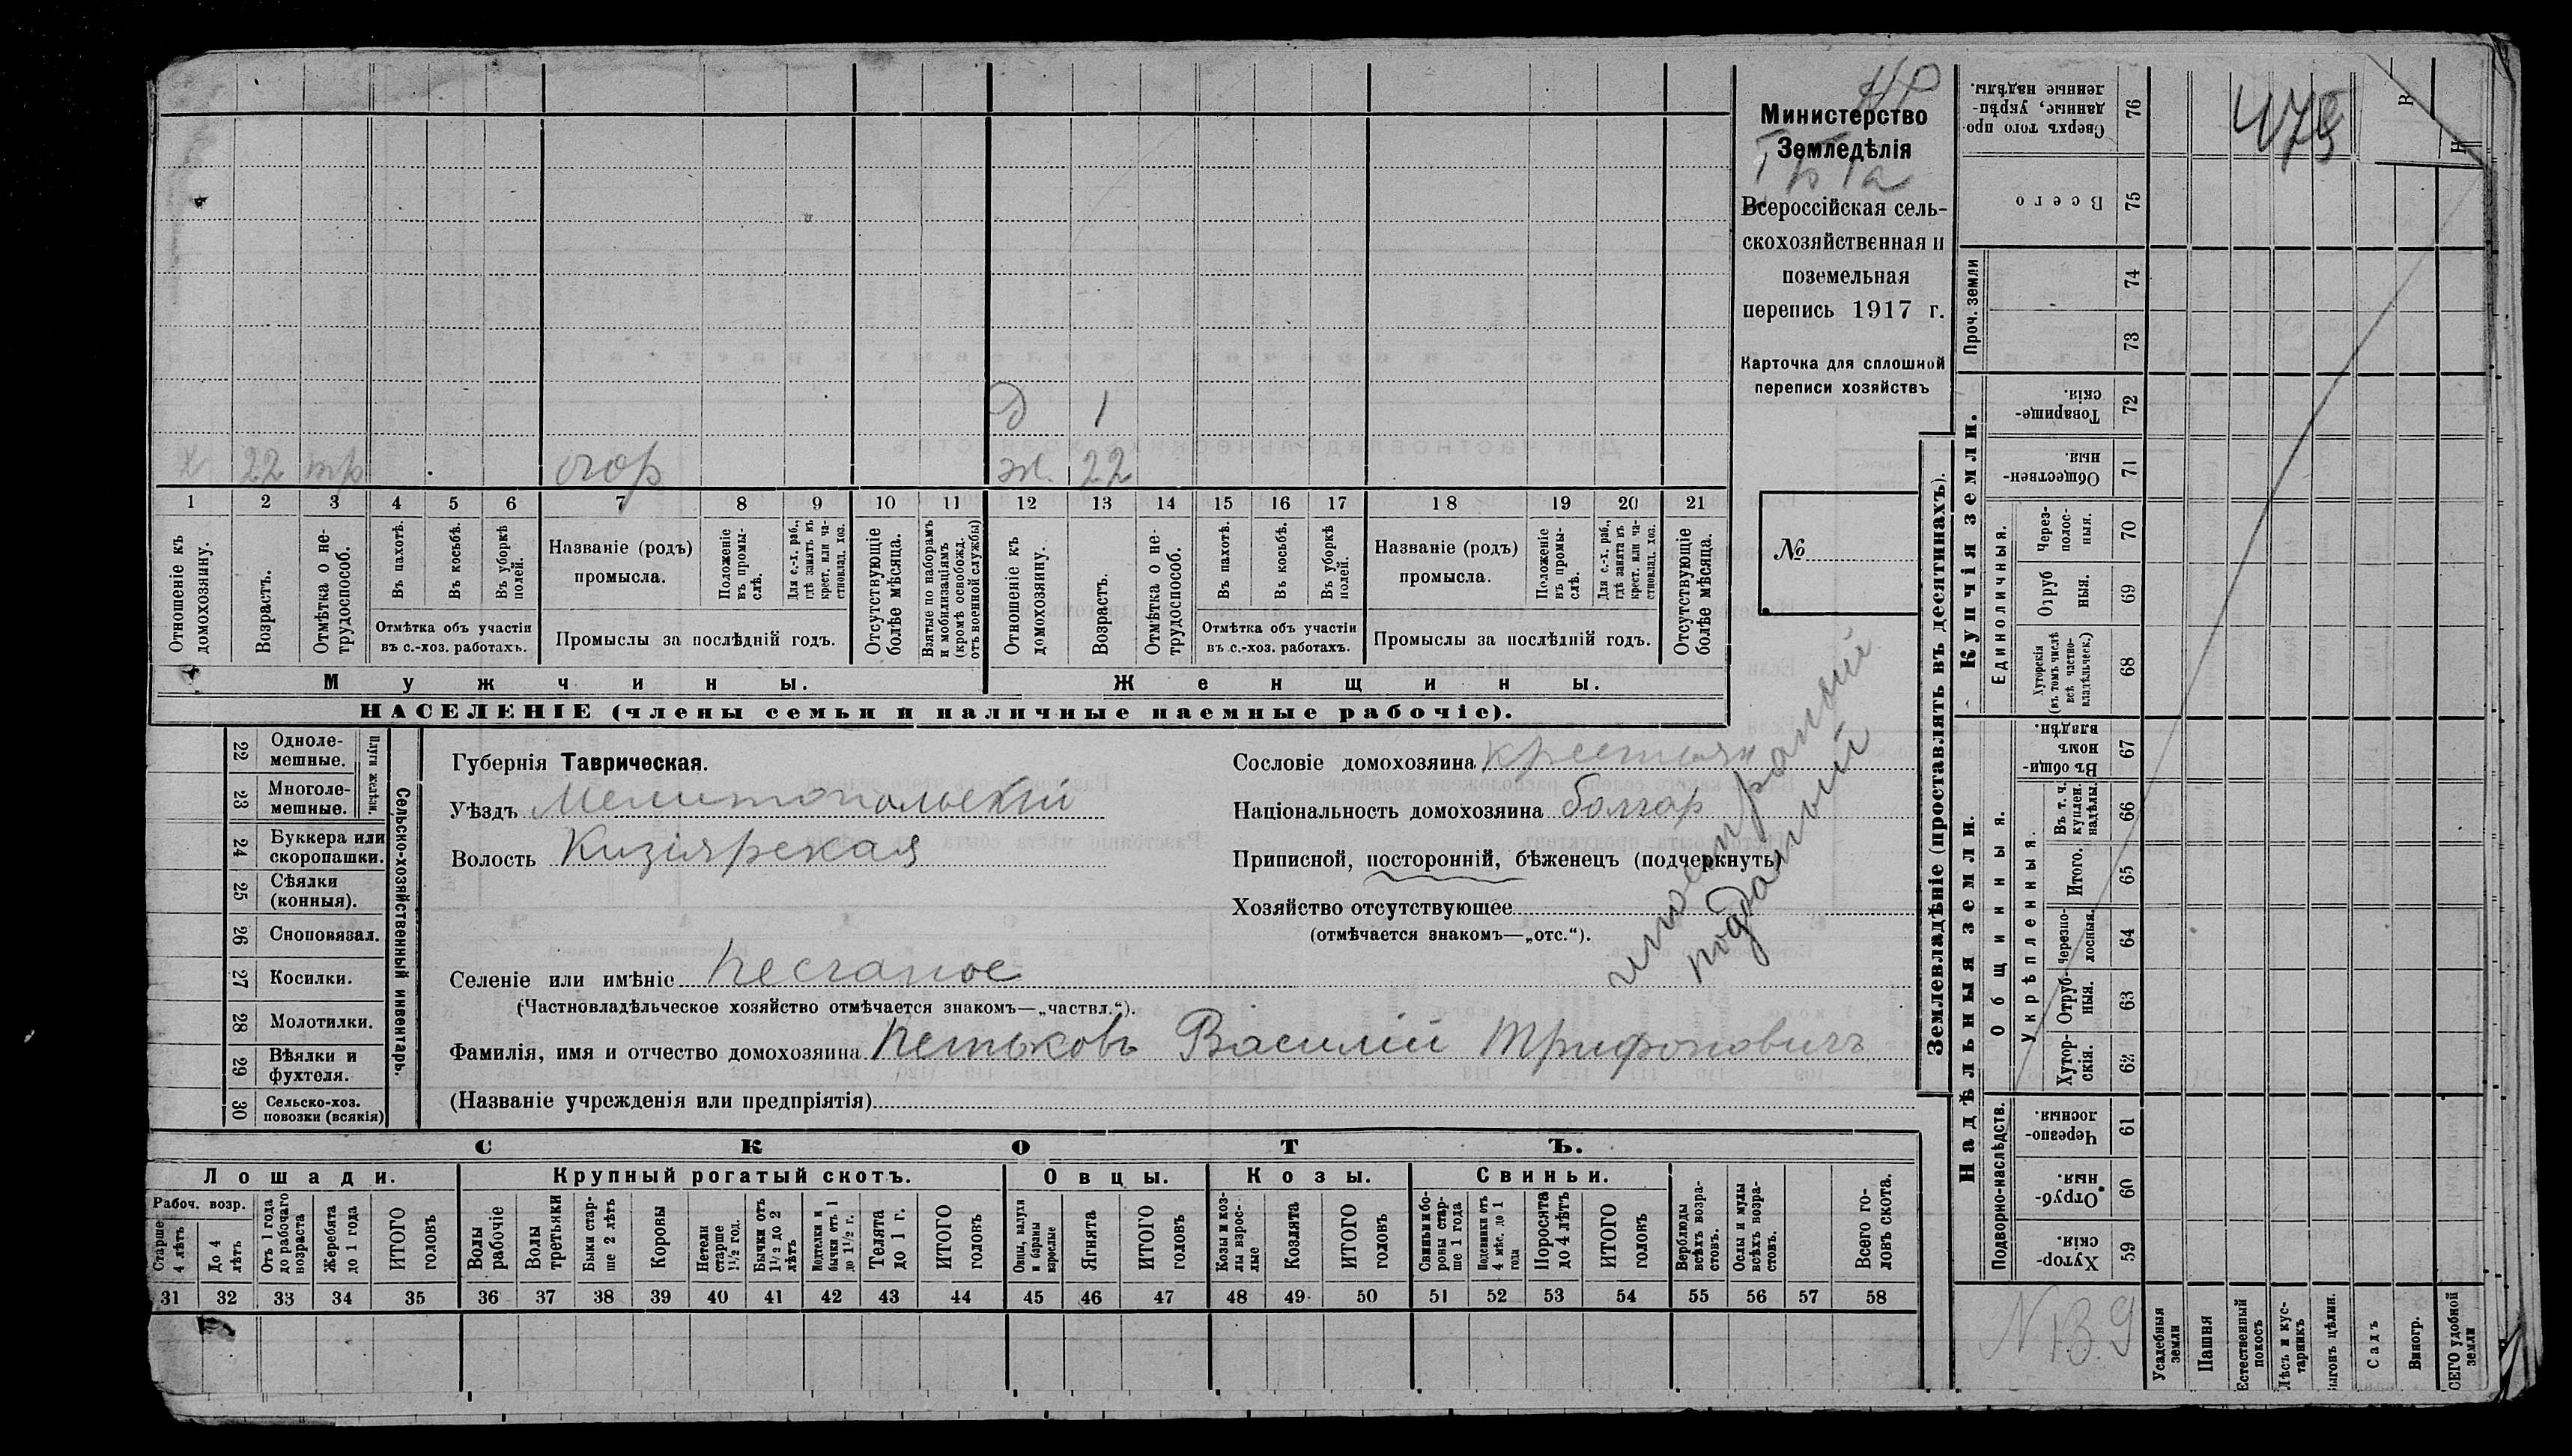 Министерство
Земледѣлія
Всероссійская сель-
скохозяйственная и
поземельная
перепись 1917 г.
Карточка для сплошной
переписи хозяйствъ
№
д 1
х 22 тр огор ж. 22
1 2 3 4 5 6 7 8 9 10 11 12 13 14 15 16 17 18 19 20 21
Отношеніе къ домохозяину.
Возрастъ.
Отмѣтка о не-трудоспособ.
Въ пахотѣ.
Въ косьбѣ.
Въ уборкѣ полей.
Отмѣтка объ участіи
въ с.-хоз. работахъ.
Названіе (родъ)
промысла.
Положеніе въ промы-слѣ.
Для с.-х. раб., гдѣ занятъ въ крест. или ча-стновлад. хоз.
Промыслы за послѣдній годъ.
Отсутствующіе болѣе мѣсяца.
Взятые по наборамъ и мобилизаціямъ (кромѣ освобожд. отъ военной службы)
Отношеніе къ домохозяину.
Возрастъ.
Отмѣтка о не-трудоспособ.
Въ пахотѣ.
Въ косьбѣ.
Въ уборкѣ полей.
Отмѣтка объ участіи
въ с.-хоз. работахъ.
Названіе (родъ)
промысла.
Положеніе въ промы-слѣ.
Для с.-х. раб., гдѣ занята въ крест. или ча-стновлад. хоз.
Промыслы за послѣдній годъ.
Отсутствующіе болѣе мѣсяца.
Мужчины. Женщины.
НАСЕЛЕНІЕ (члены семьи и наличные наемные рабочіе).
22 Одноле-мешные.
23 Многоле-мешные.
Плуги желѣзн.
24 Буккера или скоропашки.
25 Сѣялки (конныя).
26 Сноповязал.
27 Косилки.
28 Молотилки.
29 Вѣялки и фухтеля.
30 Сельско-хоз. повозки (всякія)
Сельско-хозяйственный инвентарь.
Губернія Таврическая.
Уѣздъ Мелитопольскій
Волость Кизіярская
Сословіе домохозяина крестьян
Національность домохозяина болгар
Приписной, посторонній, бѣженецъ (подчеркнуть)
Хозяйство отсутствующее
(отмѣчается знакомъ—„отс.“).
иностранный
подданный
Селеніе или имѣніе Песчаное
(Частновладѣльческое хозяйство отмѣчается знакомъ—„частвл.“).
Фамилія, имя и отчество домохозяина Петьковъ Василій Трифоновичъ
(Названіе учрежденія или предпріятія)
СКОТЪ.
Лошади. Крупный рогатый скотъ. Овцы. Козы. Свиньи.
Рабоч. возр.
Старше 4 лѣтъ
До 4 лѣтъ
Отъ 1 года до рабочаго возраста
Жеребята до 1 года
ИТОГО головъ
Волы рабочіе
Волы третьяки
Быки стар-ше 2 лѣтъ
Коровы
Нетели старше 1½ год.
Бычки отъ 1½ до 2 лѣтъ
Подтелки и бычки отъ 1 до 1½ г.
Телята до 1 г.
ИТОГО головъ
Овцы, валухи и бараны взрослые
Ягнята
ИТОГО головъ
Козы и коз-лы взрос-лые
Козлята
ИТОГО головъ
Свиньи и бо-ровы стар-ше 1 года
Подсвинки отъ 4 мѣс. до 1 года
Поросята до 4 лѣтъ
ИТОГО головъ
Верблюды всѣхъ возра-стовъ.
Ослы и мулы всѣхъ возра-стовъ.
Всего го-ловъ скота.
31 32 33 34 35 36 37 38 39 40 41 42 43 44 45 46 47 48 49 50 51 52 53 54 55 56 57 58
Землевладѣніе (проставлять въ десятинахъ).
Купчія земли.
Сверхъ того про-данные, укрѣп-ленные надѣлы. 76
Всего 75
Проч. земли 74 73
Товарище-скія. 72
Обществен-ныя. 71
Единоличныя.
Через-полос-ныя. 70
Отруб ныя. 69
Хуторскія (въ томъ числѣ всѣ частно-владѣльческ.) 68
Надѣльныя земли.
Общинныя.
Въ общи-номъ владѣн. 67
Укрѣпленныя.
Въ т. ч. куплен. надѣлы. 66
Итого. 65
Черезпо-лосныя. 64
Отруб-ныя. 63
Хутор-скія. 62
Подворно-наслѣдств.
Черезпо-лосныя. 61
Отруб-ныя. 60
Хутор-скія. 59
N 139
Усадебныя земли
Пашня
Естественный покосъ
Лѣсъ и кус-тарникъ
Садъ
Виногр.